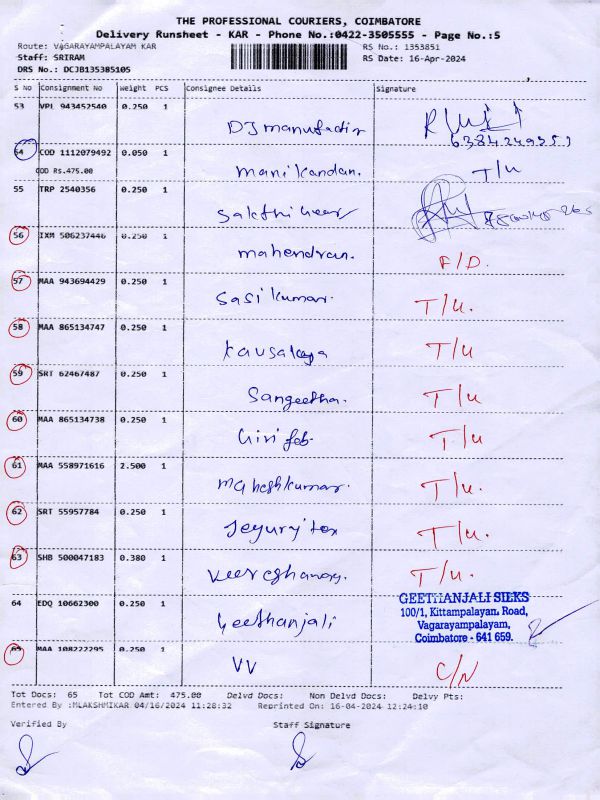 THE PROFESSIONAL COURIERS, COIMBATORE
Delivery Runsheet - KAR - Phone No.:0422-3505555 - Page No.:5
Route: VAGARAYAMPALAYAM KAR RS No.: 1353851
Staff: SRIRAM RS Date: 16-Apr-2024
DRS No.: DCJB135385105
S No Consignment No Weight PCS Consignee Details Signature
53 VPL 943452540 0.250 1
DJ manufadir
54 COD 1112079492 0.050 1
COD Rs.475.00 manikandan. T/U
55 TRP 2540356 0.250 1
56 IXM 506237446 0.250 1
mahendran. F/D.
57 MAA 943694429 0.250 1
Sasikumar. T/U.
58 MAA 865134747 0.250 1
Kausalaya T/U
59 SRT 62467487 0.250 1
Sangeetha. T/U.
60 MAA 865134738 0.250 1
T/U
61 MAA 558971616 2.500 1
Maheshkumar. T/U.
62 SRT 55957784 0.250 1
T/U.
63 SHB 500047183 0.380 1
T/U.
64 EDQ 10662300 0.250 1
Geethanjali
GEETHANJALI SILKS
100/1, Kittampalayam Road,
Vagarayampalayam,
Coimbatore - 641 659.
65 MAA 108222295 0.250 1
VV C/N
Tot Docs: 65 Tot COD Amt: 475.00 Delvd Docs: Non Delvd Docs: Delvy Pts:
Entered By :MLAKSHMIKAR 04/16/2024 11:28:32 Reprinted On: 16-04-2024 12:24:10
Verified By Staff Signature